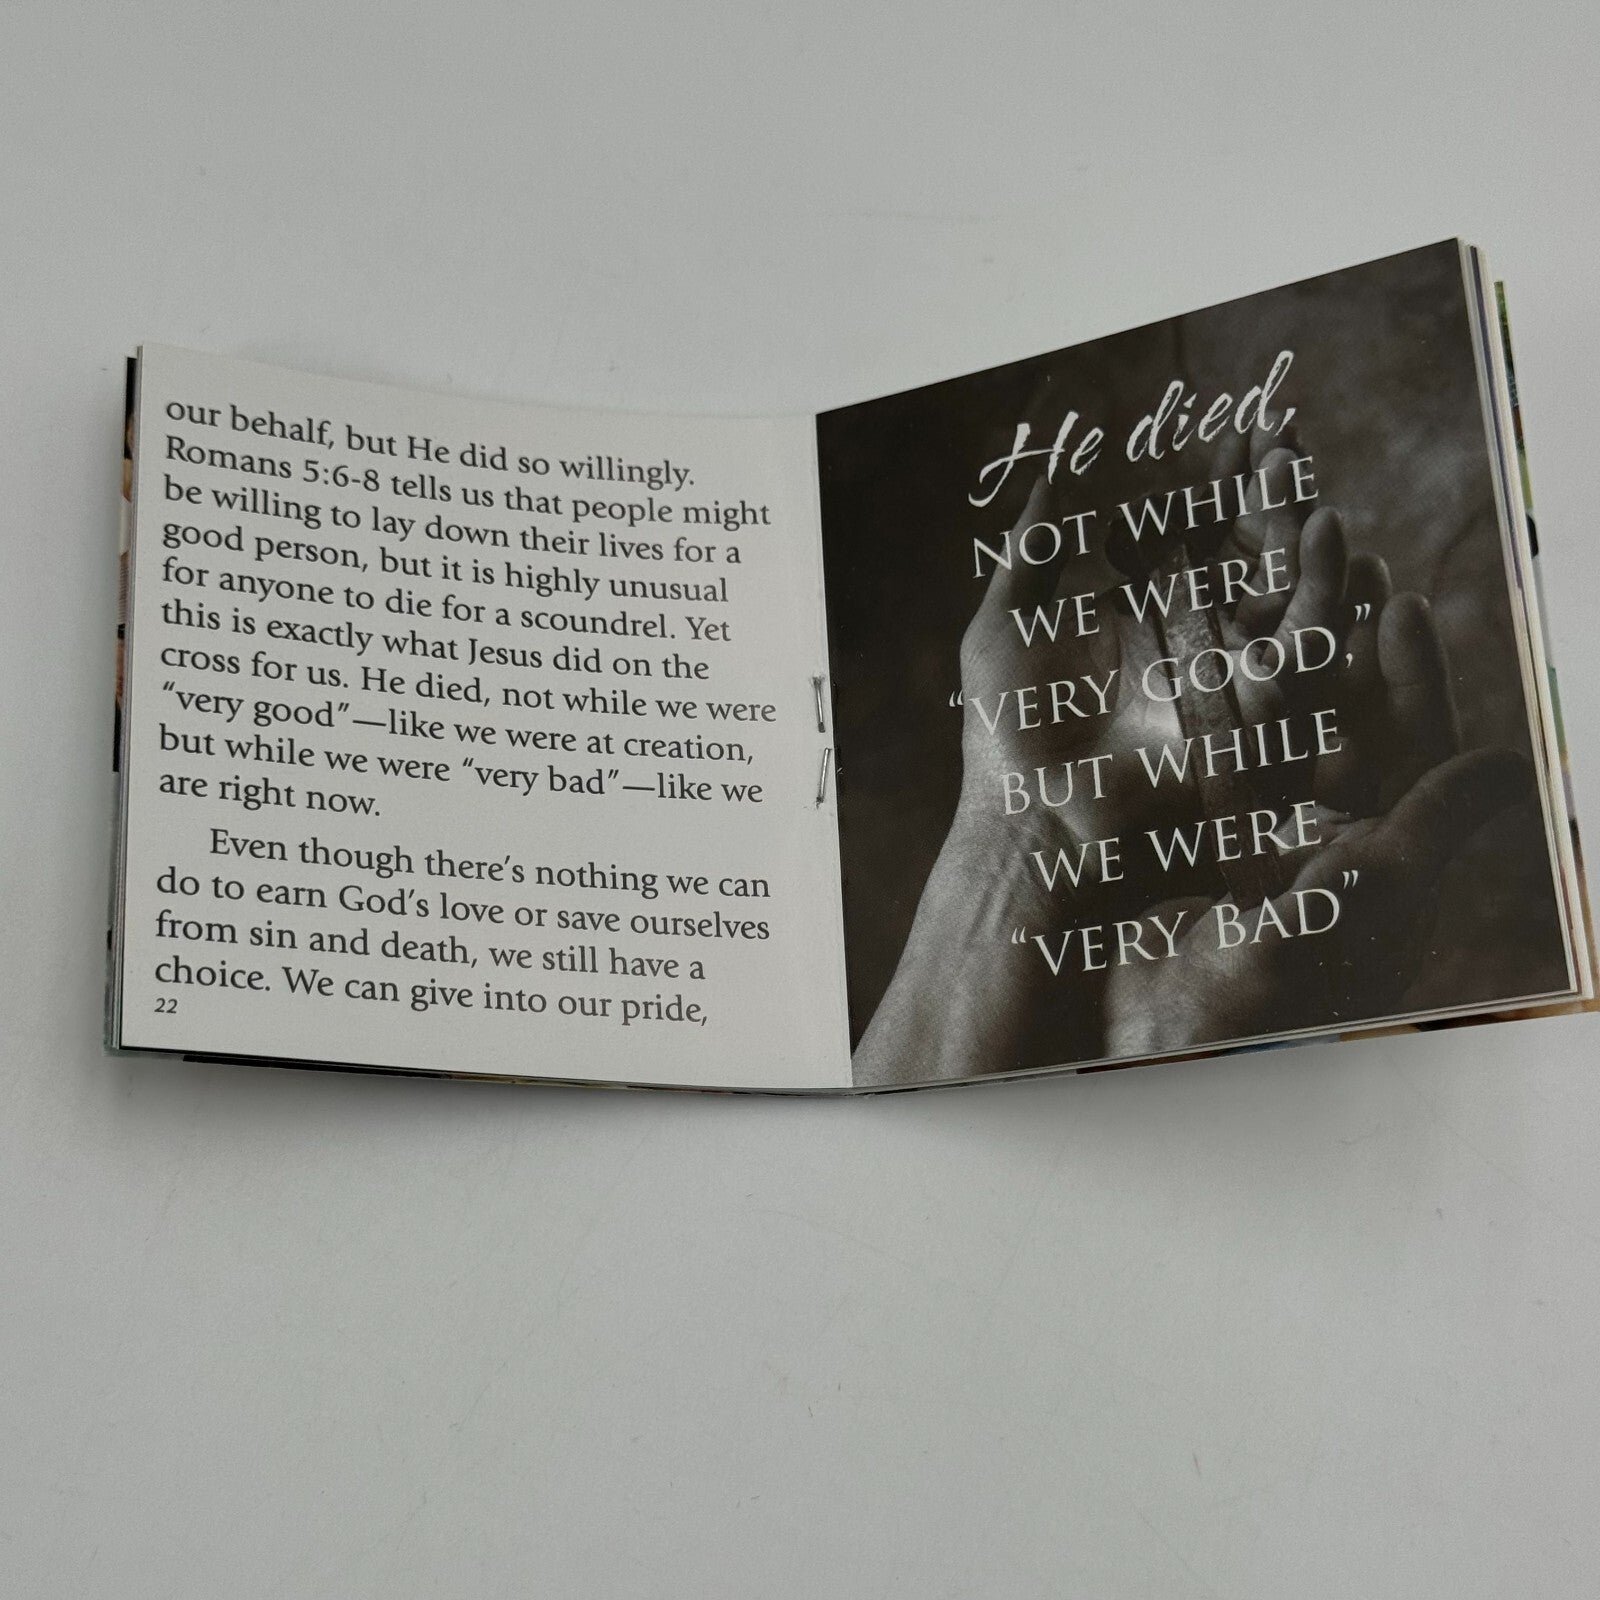 our behalf, but He did so willingly.
Romans 5:6-8 tells us that people might
be willing to lay down their lives for a
good person, but it is highly unusual
for anyone to die for a scoundrel. Yet
this is exactly what Jesus did on the
cross for us. He died, not while we were
“very good”—like we were at creation,
but while we were “very bad”—like we
are right now.
Even though there’s nothing we can
do to earn God’s love or save ourselves
from sin and death, we still have a
choice. We can give into our pride,
22
He died,
NOT WHILE
WE WERE
“VERY GOOD,”
BUT WHILE
WE WERE
“VERY BAD”